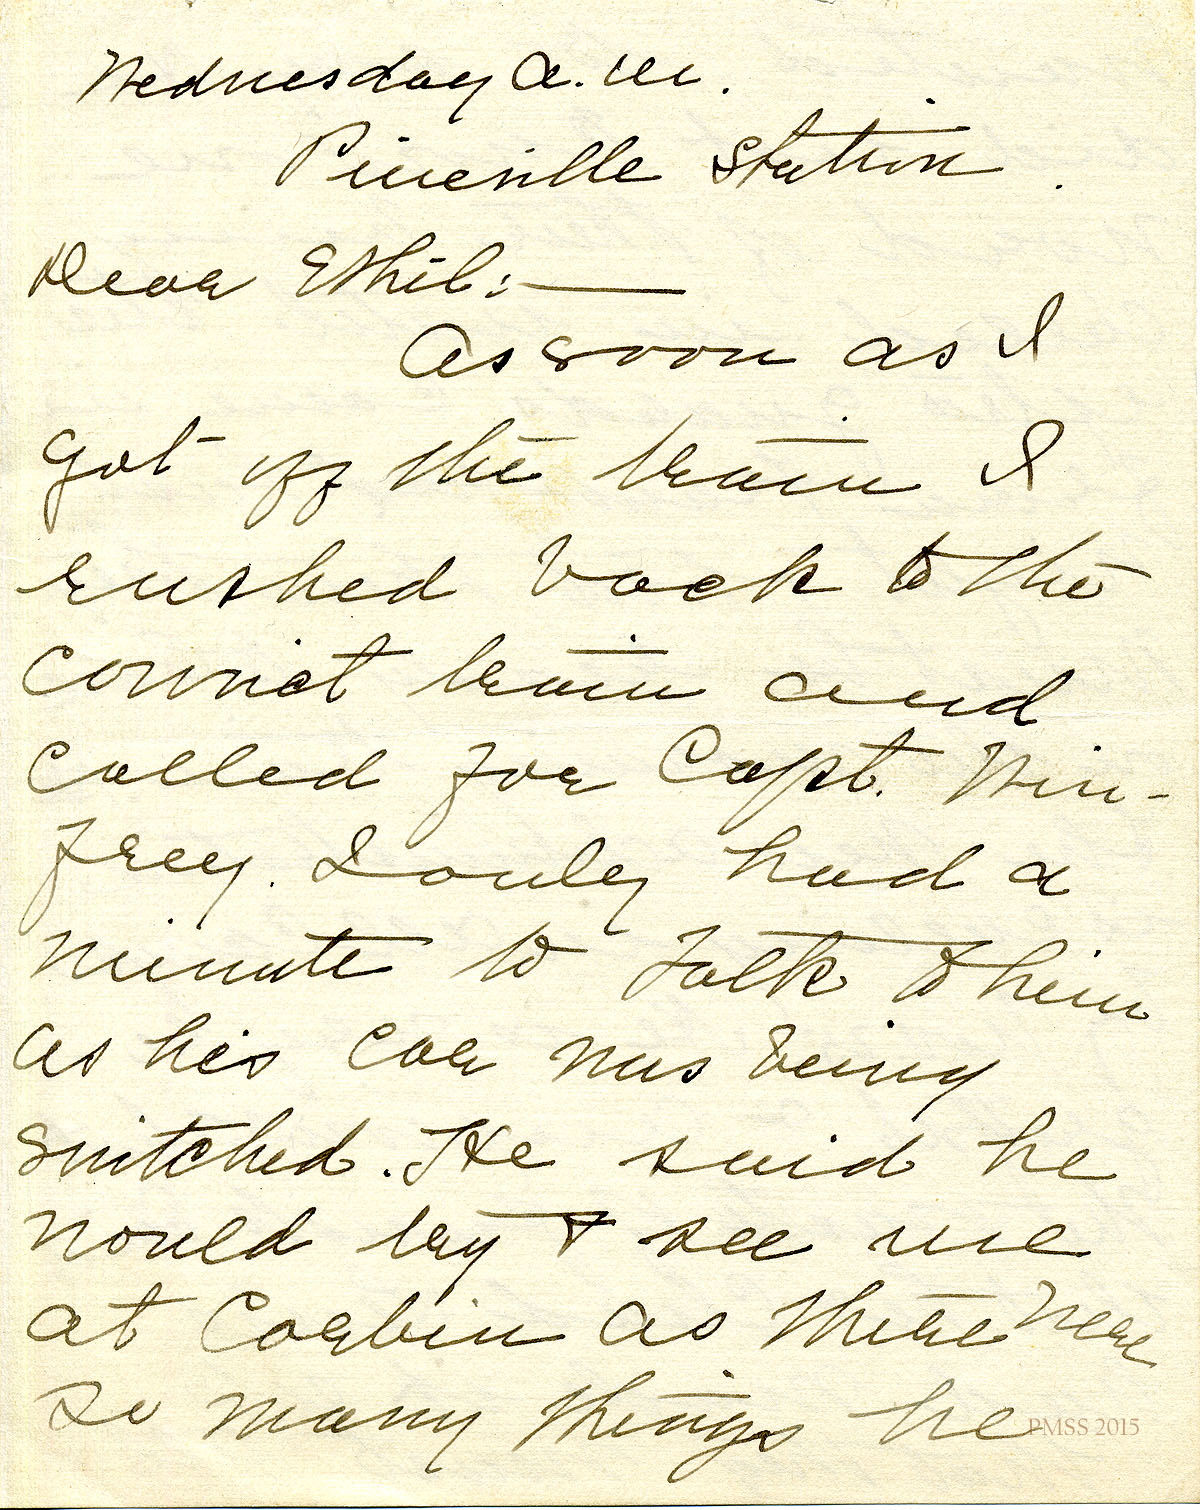 Wednesday a.m.
Pineville Station.
Dear Ethel:—
As soon as I
got off the train I
rushed back to the
convict train and
called for Capt. Win-
frey. I only had a
minute to talk to him
as his car was being
switched. He said he
would try to see me
at Corbin as there were
so many things he
PMSS 2015